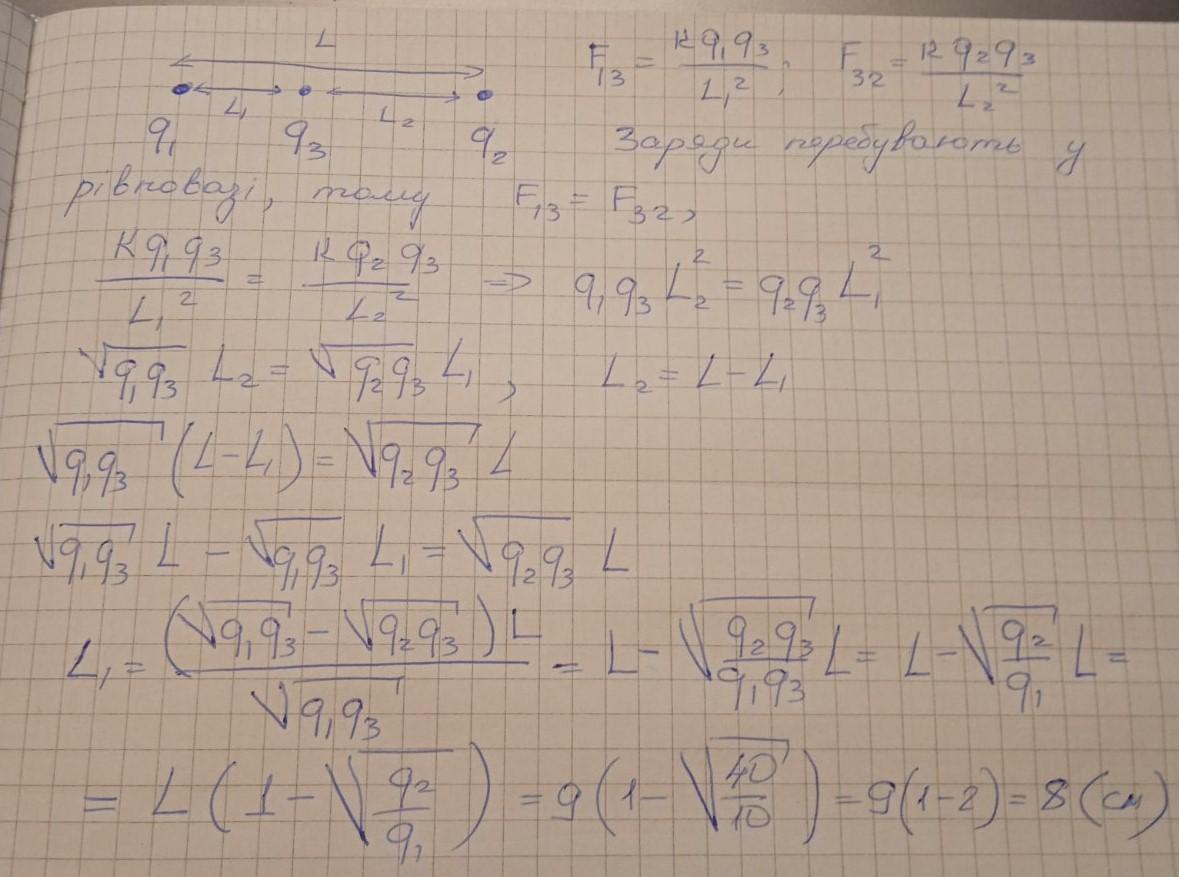 L
L₁ L₂
q₁ q₃ q₂
F₁₃ = Kq₁q₃/L₁²; F₃₂ = Kq₂q₃/L₂²
Заряди перебувають у
рівновазі, тому F₁₃ = F₃₂,
Kq₁q₃/L₁² = Kq₂q₃/L₂² => q₁q₃L₂² = q₂q₃L₁²
√(q₁q₃) L₂ = √(q₂q₃) L₁, L₂ = L-L₁
√(q₁q₃) (L-L₁) = √(q₂q₃) L
√(q₁q₃) L - √(q₁q₃) L₁ = √(q₂q₃) L
L₁ = (√(q₁q₃) - √(q₂q₃))L/√(q₁q₃) = L - √(q₂q₃/q₁q₃) L = L - √(q₂/q₁) L =
= L(1 - √(q₂/q₁)) = 9(1 - √(40/10)) = 9(1-2) = 8 (см)